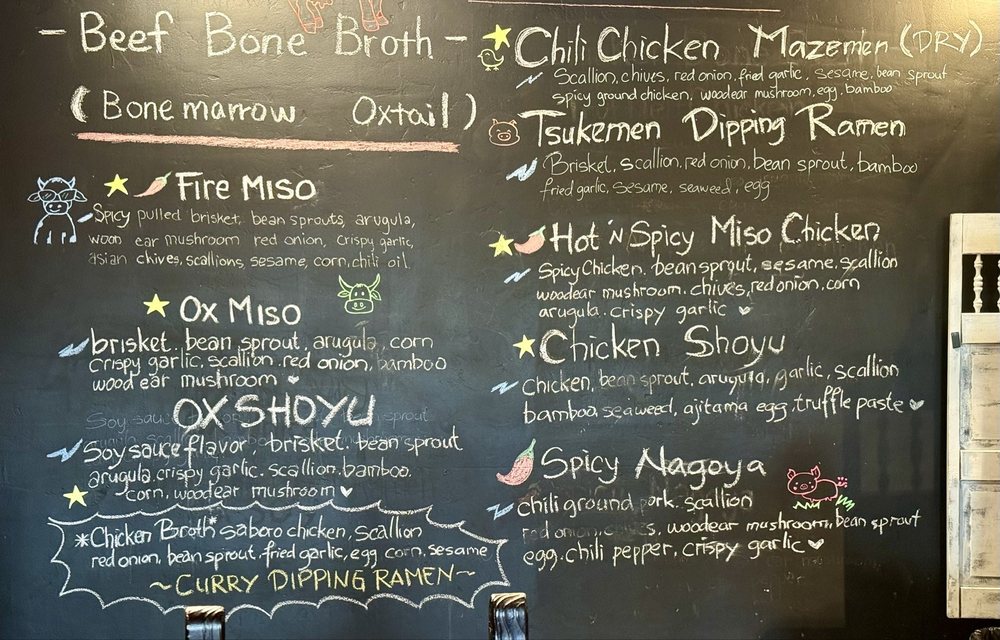 - Beef Bone Broth -
(Bone marrow Oxtail)
Fire Miso
Spicy pulled brisket, bean sprouts, arugula,
wood ear mushroom red onion, crispy garlic,
asian chives, scallions, sesame, corn, chili oil
Ox Miso
brisket, bean sprout, arugula, corn
crispy garlic, scallion, red onion, bamboo
wood ear mushroom
OX SHOYU
Soy sauce flavor, brisket, bean sprout
arugula, crispy garlic, scallion, bamboo,
corn, woodear mushroom
*Chicken Broth* saboro chicken, scallion
red onion, bean sprout, fried garlic, egg corn, sesame
~CURRY DIPPING RAMEN~
Chili Chicken Mazemen (DRY)
Scallion, chives, red onion, fried garlic, sesame, bean sprout
spicy ground chicken, woodear mushroom, egg, bamboo
Tsukemen Dipping Ramen
Brisket, scallion, red onion, bean sprout, bamboo
fried garlic, sesame, seaweed, egg
Hot 'N Spicy Miso Chicken
Spicy Chicken, bean sprout, sesame, scallion
woodear mushroom, chives, red onion, corn
arugula, crispy garlic
Chicken Shoyu
chicken, bean sprout, arugula, garlic, scallion
bamboo, seaweed, ajitama egg, truffle paste
Spicy Nagoya
chili ground pork, scallion
red onion, chives, woodear mushroom, bean sprout
egg, chili pepper, crispy garlic